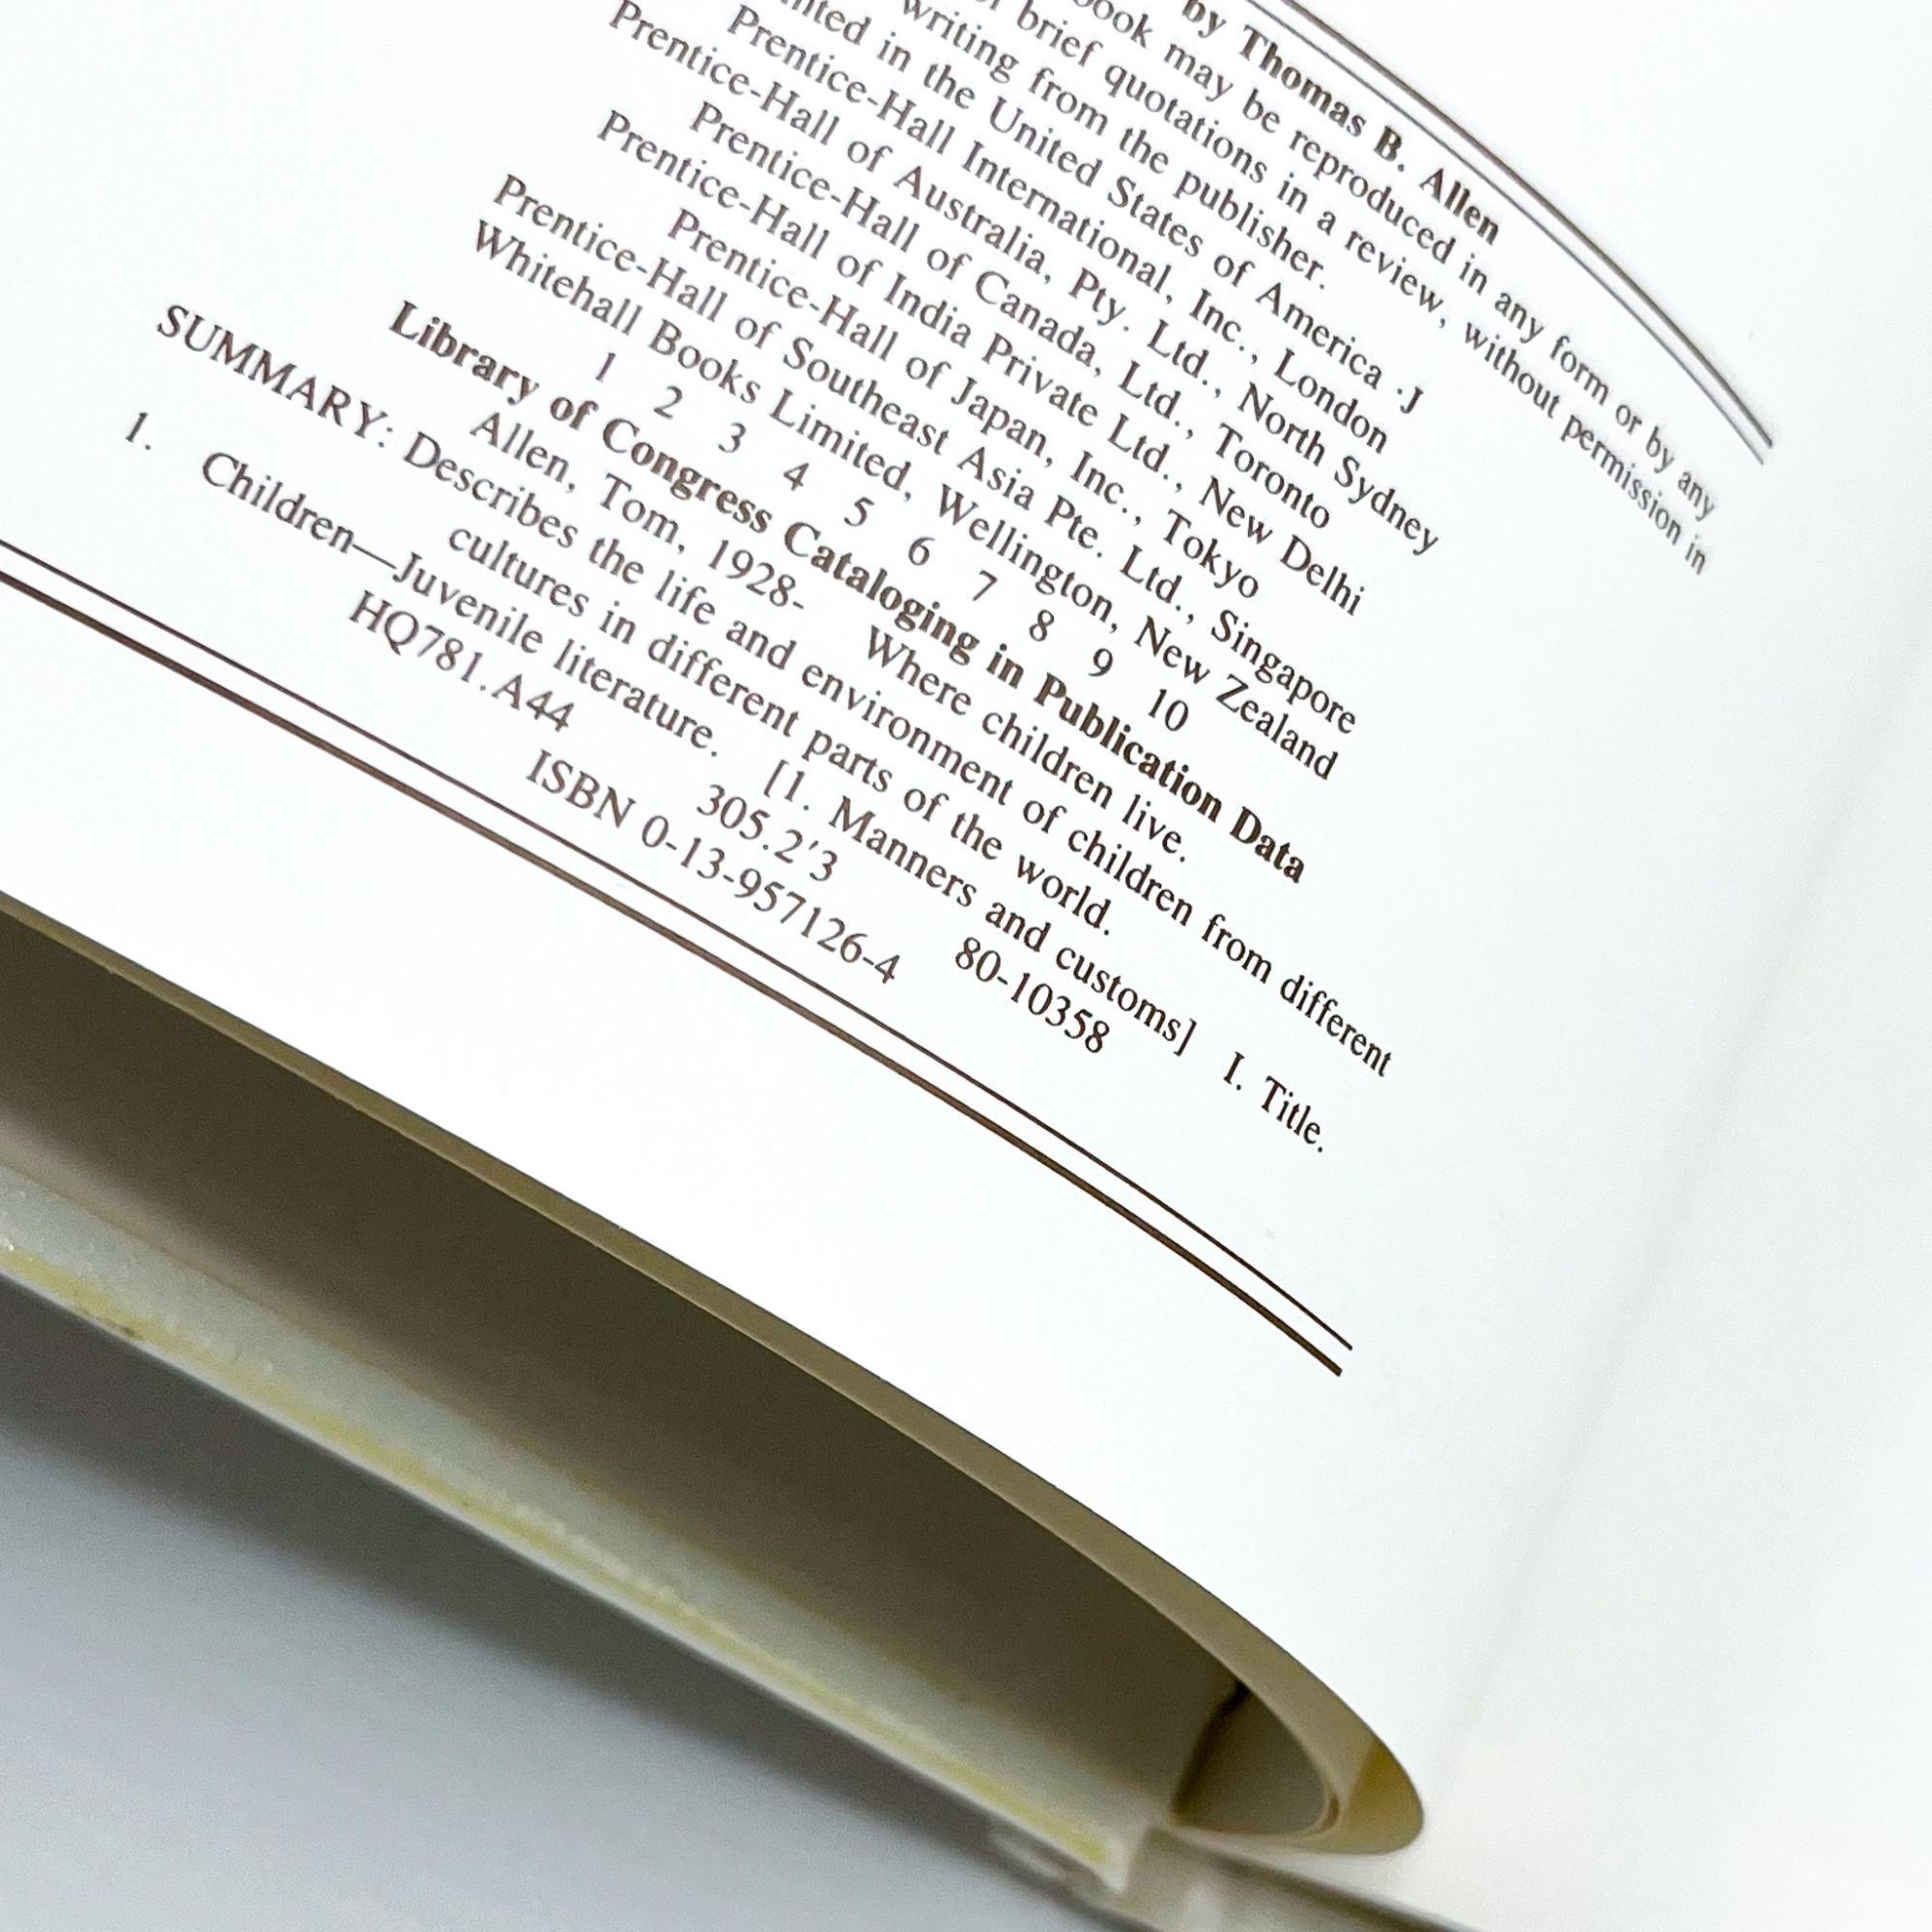 by Thomas B. Allen
book may be reproduced in any form or by any
brief quotations in a review, without permission in
writing from the publisher.
in the United States of America ·J
Prentice-Hall International, Inc., London
Prentice-Hall of Australia, Pty. Ltd., North Sydney
Prentice-Hall of Canada, Ltd., Toronto
Prentice-Hall of India Private Ltd., New Delhi
Prentice-Hall of Japan, Inc., Tokyo
Prentice-Hall of Southeast Asia Pte. Ltd., Singapore
Whitehall Books Limited, Wellington, New Zealand
1 2 3 4 5 6 7 8 9 10
Library of Congress Cataloging in Publication Data
Allen, Tom, 1928- Where children live.
SUMMARY: Describes the life and environment of children from different
cultures in different parts of the world.
1. Children—Juvenile literature. [1. Manners and customs] I. Title.
HQ781.A44 305.2'3 80-10358
ISBN 0-13-957126-4